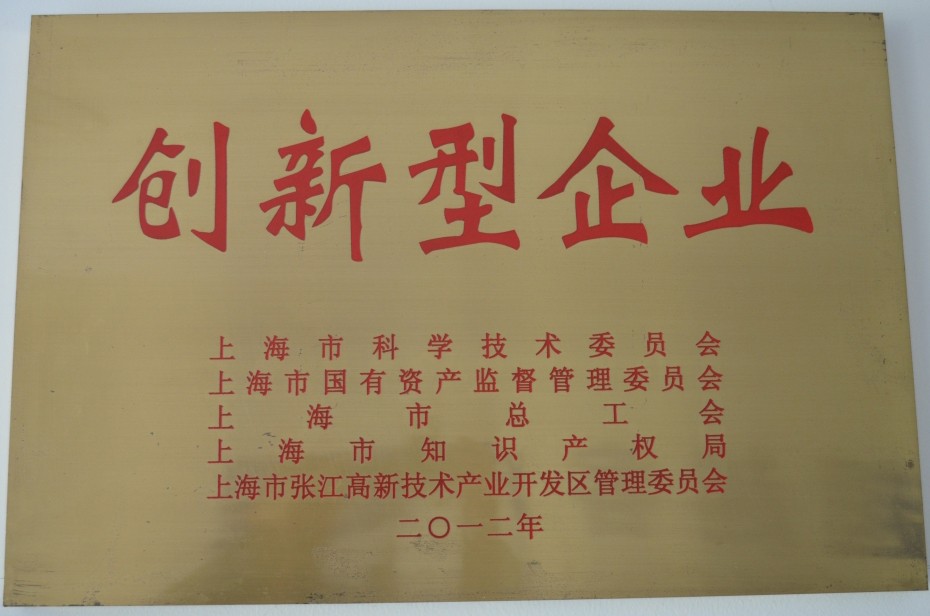 创新型企业
上海市科学技术委员会
上海市国有资产监督管理委员会
上海市总工会
上海市知识产权局
上海市张江高新技术产业开发区管理委员会
二〇一二年